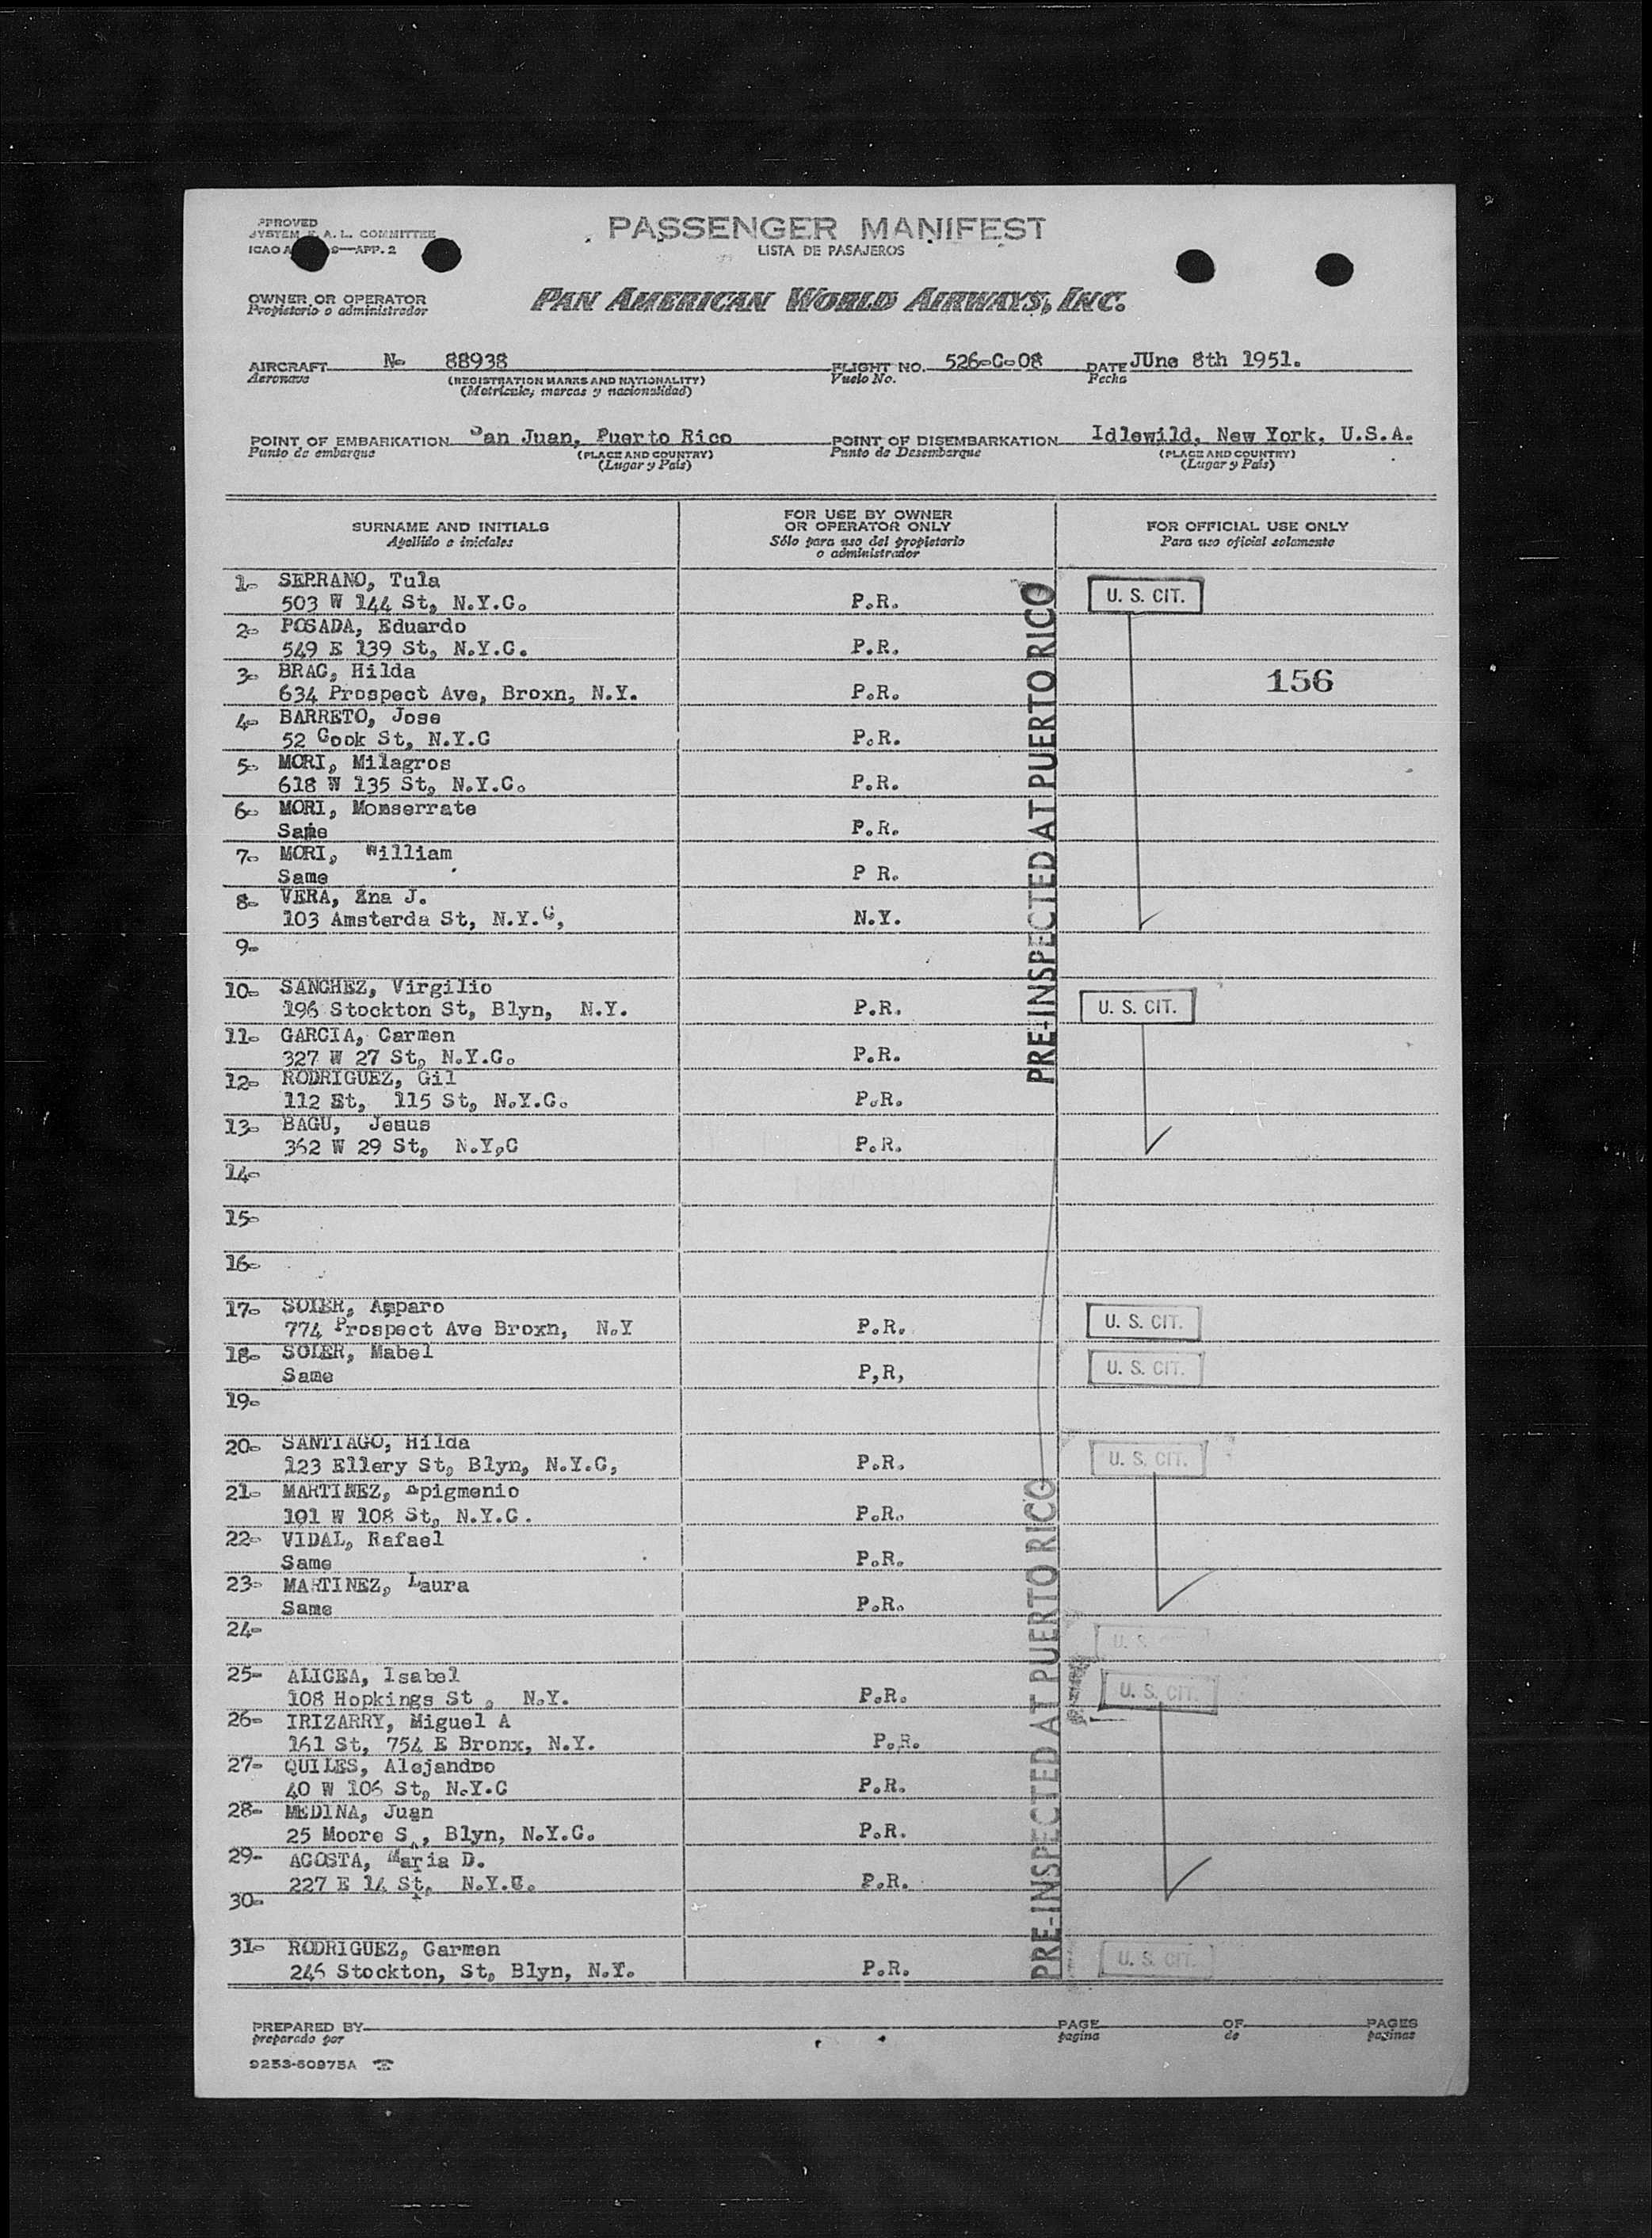 PPROVED
SYSTEM F. A. L. COMMITTEE
ICAO A 9—APP. 2
PASSENGER MANIFEST
LISTA DE PASAJEROS
OWNER OR OPERATOR
Propietario o administrador
PAN AMERICAN WORLD AIRWAYS, INC.
AIRCRAFT N- 88938 FLIGHT NO. 526-C-08 DATE JUne 8th 1951.
Aeronave (REGISTRATION MARKS AND NATIONALITY) Vuelo No. Fecha
(Matrícula; marcas y nacionalidad)
POINT OF EMBARKATION San Juan, Puerto Rico POINT OF DISEMBARKATION Idlewild, New York, U.S.A.
Punto de embarque (PLACE AND COUNTRY) Punto de Desembarque (PLACE AND COUNTRY)
(Lugar y País) (Lugar y País)
SURNAME AND INITIALS
Apellido e iniciales
FOR USE BY OWNER
OR OPERATOR ONLY
Sólo para uso del propietario
o administrador
FOR OFFICIAL USE ONLY
Para uso oficial solamente
1- SERRANO, Tula
503 W 144 St, N.Y.C. P.R. U. S. CIT.
2- POSADA, Eduardo
549 E 139 St, N.Y.C. P.R.
3- BRAC, Hilda 156
634 Prospect Ave, Broxn, N.Y. P.R.
4- BARRETO, Jose
52 Cook St, N.Y.C P.R.
5- MORI, Milagros
618 W 135 St, N.Y.C. P.R.
6- MORI, Monserrate
Same P.R.
7- MORI, William
Same P R.
8- VERA, Ana J.
103 Amsterda St, N.Y.C, N.Y.
9-
10- SANCHEZ, Virgilio
196 Stockton St, Blyn, N.Y. P.R. U. S. CIT.
11- GARCIA, Carmen
327 W 27 St, N.Y.C. P.R.
12- RODRIGUEZ, Gil
112 Et, 115 St, N.Y.C. P.R.
13- BAGU, Jesus
362 W 29 St, N.Y,C P.R.
PRE-INSPECTED AT PUERTO RICO
14-
15-
16-
17- SOLER, Amparo
774 Prospect Ave Broxn, N.Y P.R. U. S. CIT.
18- SOLER, Mabel
Same P,R, U. S. CIT.
19-
20- SANTIAGO, Hilda
123 Ellery St, Blyn, N.Y.C, P.R. U. S. CIT.
21- MARTINEZ, Apigmenio
101 W 108 St, N.Y.C. P.R.
22- VIDAL, Rafael
Same P.R.
23- MARTINEZ, Laura
Same P.R.
24- U. S.
25- ALICEA, Isabel
108 Hopkings St , N.Y. P.R. U. S. CIT.
26- IRIZARRY, Miguel A
161 St, 754 E Bronx, N.Y. P.R.
27- QUILES, Alejandro
40 W 106 St, N.Y.C P.R.
28- MEDINA, Juan
25 Moore S , Blyn, N.Y.C. P.R.
29- ACOSTA, Maria D.
227 E 14 St, N.Y.C. P.R.
30-
31- RODRIGUEZ, Carmen
246 Stockton, St, Blyn, N.Y. P.R. U. S. CIT.
PRE-INSPECTED AT PUERTO RICO
PREPARED BY PAGE OF PAGES
preparado por pagina de paginas
9253-60975A